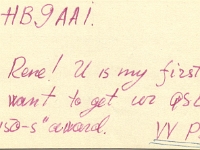 HB9AAI.
Rene! U is my first
want to get ur QSL
"150-s" award.